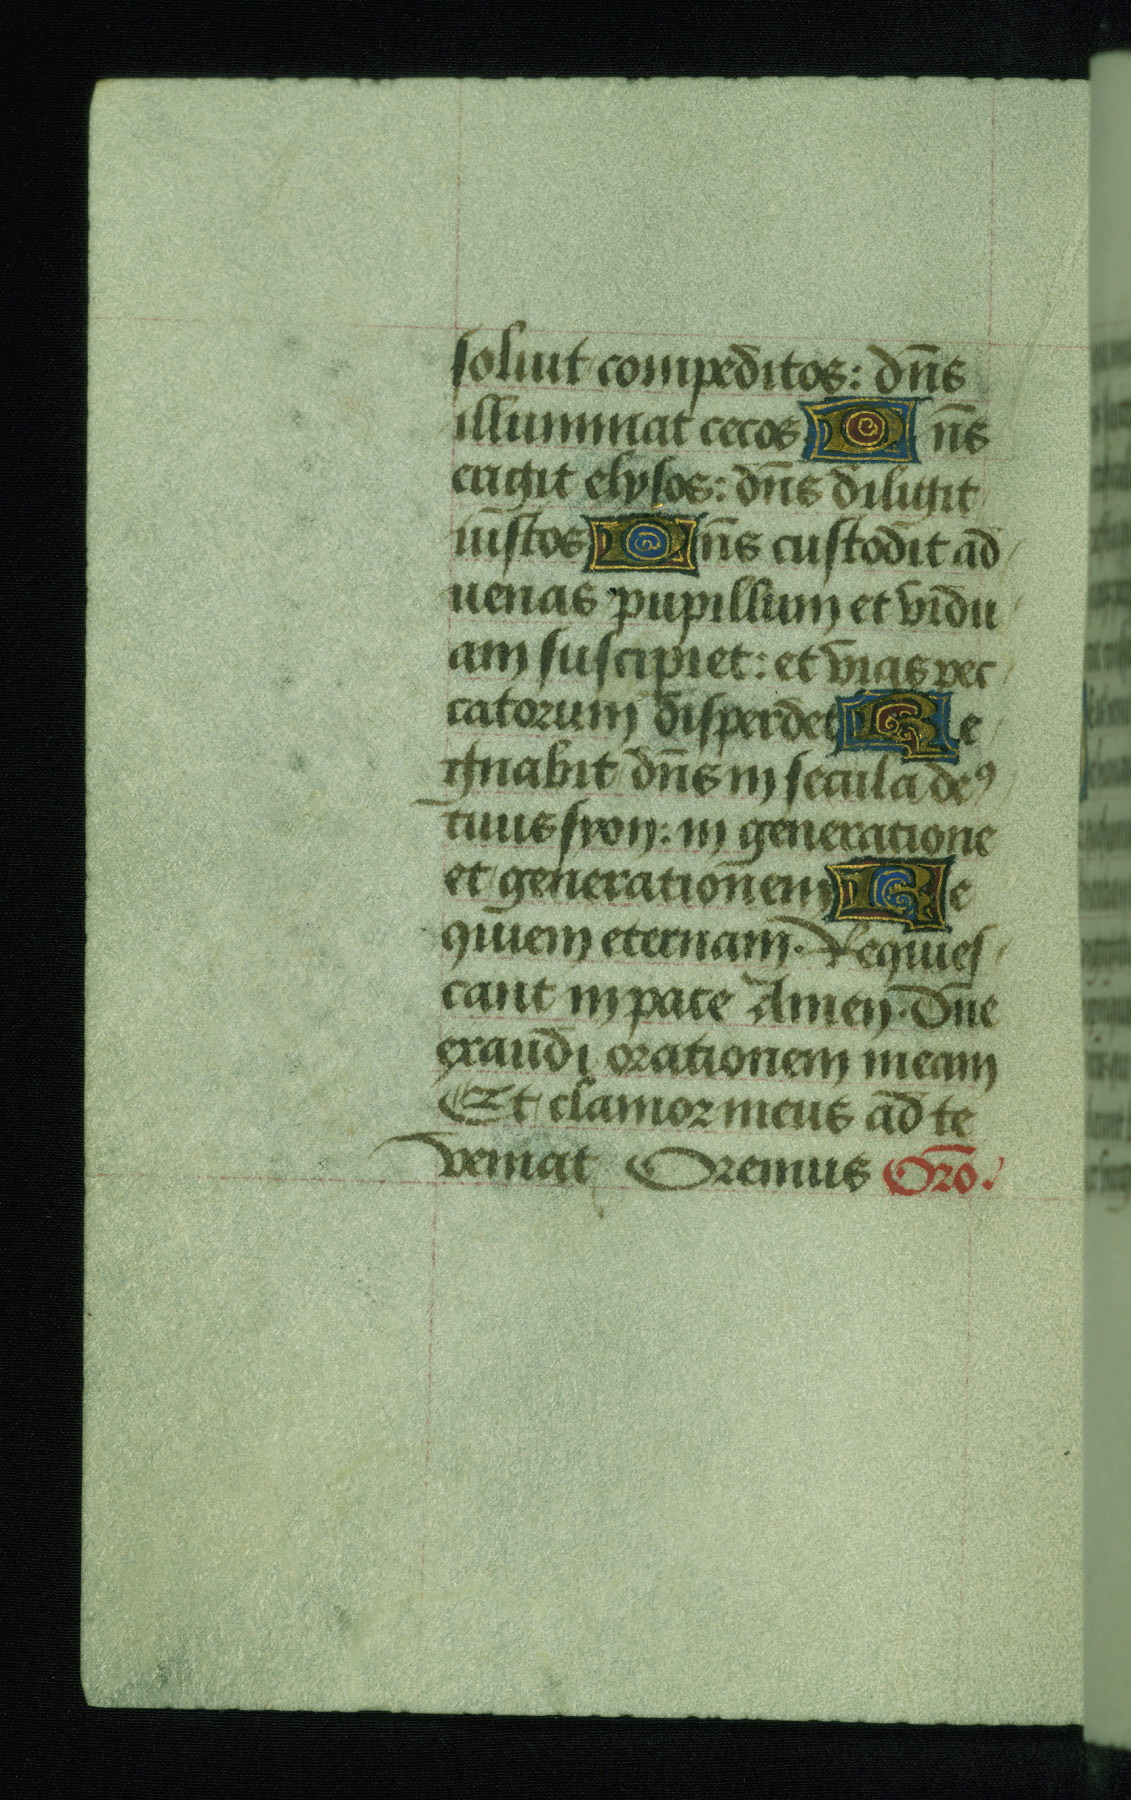 soluit compeditos: dn̄s
illuminat cecos Dn̄s
erigit elysos: dn̄s diligit
iustos Dn̄s custodit ad
uenas pupillum et vidu
am suscipiet: et vias pec
catorum disperdet Re
gnabit dn̄s in secula deꝰ
tuus syon: in generatione
et generationem Re
quiem eternam. Requies
cant in pace Amen. Dn̄e
exaudi orationem meam
Et clamor meus ad te
veniat Oremus Or̄o.